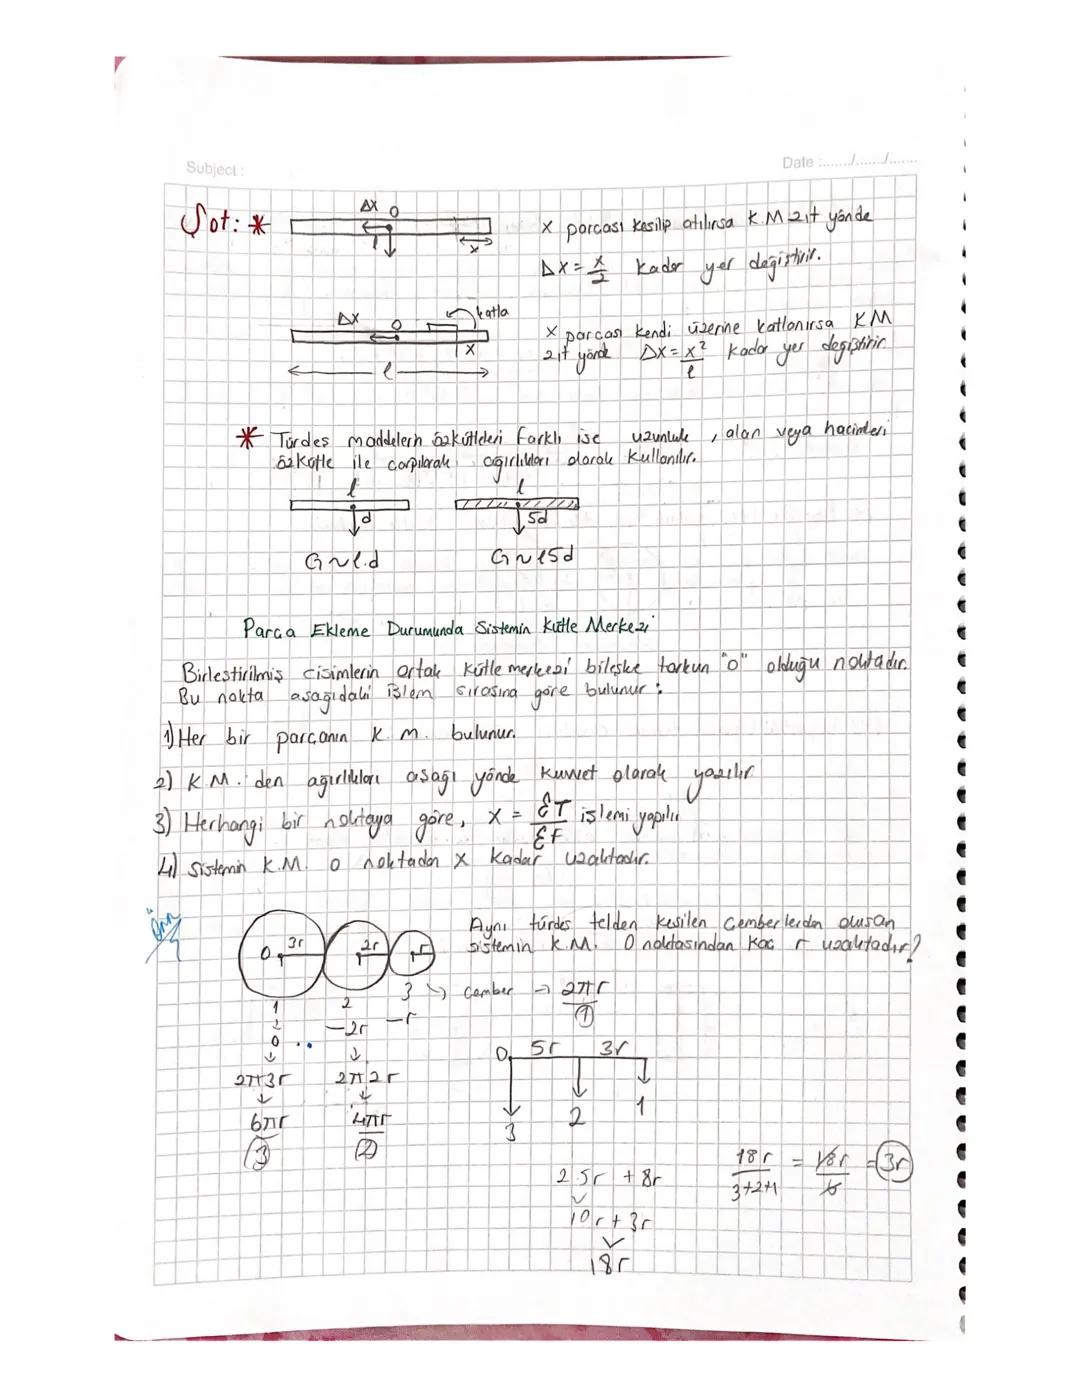 Subject :
Date :......../......../........
Not: *
Δx O
x
x parçası kesilip atılırsa K.M zıt yönde
Δx = x/2 kadar yer değiştirir.
Δx O katla
x
l
x parçası kendi üzerine katlanırsa KM
zıt yönde Δx = x²/l kadar yer değiştirir
* Türdeş maddelerin özkütleleri farklı ise uzunluk, alan veya hacimleri
özkütle ile çarpılarak ağırlıkları olarak kullanılır.
l l
d 5d
G~l.d G~l5d
Parça Ekleme Durumunda Sistemin Kütle Merkezi
Birleştirilmiş cisimlerin ortak kütle merkezi bileşke torkun "o" olduğu noktadır.
Bu nokta aşağıdaki işlem sırasına göre bulunur:
1) Her bir parçanın K.M. bulunur.
2) K.M. den ağırlıkları aşağı yönde kuvvet olarak yazılır
3) Herhangi bir noktaya göre, x = ƐT/ƐF işlemi yapılır
4) Sistemin K.M. o noktadan x kadar uzaktadır.
Örn
Aynı türdeş telden kesilen çemberlerden oluşan
sistemin K.M. O noktasından kaç r uzaktadır?
O 3r 2r r
1 2 3 ↳ çember → 2πr
①
0 -2r -r
2π3r 2π2r
6πr 4πr
③ ②
O 5r 3r
3 2 1
2.5r + 8r
10r + 3r
18r
18r/3+2+1 = 18r/6 = 3r